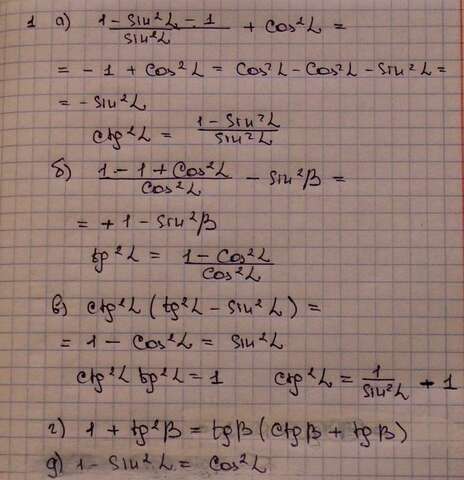 1 а) (1 - sin²L - 1)/(sin²L) + cos²L =
= - 1 + cos²L = cos²L - cos²L - sin²L =
= - sin²L
ctg²L = (1 - sin²L)/(sin²L)
б) (1 - 1 + cos²L)/(cos²L) - sin²β =
= + 1 - sin²β
tg²L = (1 - cos²L)/(cos²L)
в) ctg²L (tg²L - sin²L) =
= 1 - cos²L = sin²L
ctg²L tg²L = 1 ctg²L = 1/(sin²L) + 1
г) 1 + tg²β = tgβ (ctgβ + tgβ)
д) 1 - sin²L = cos²L